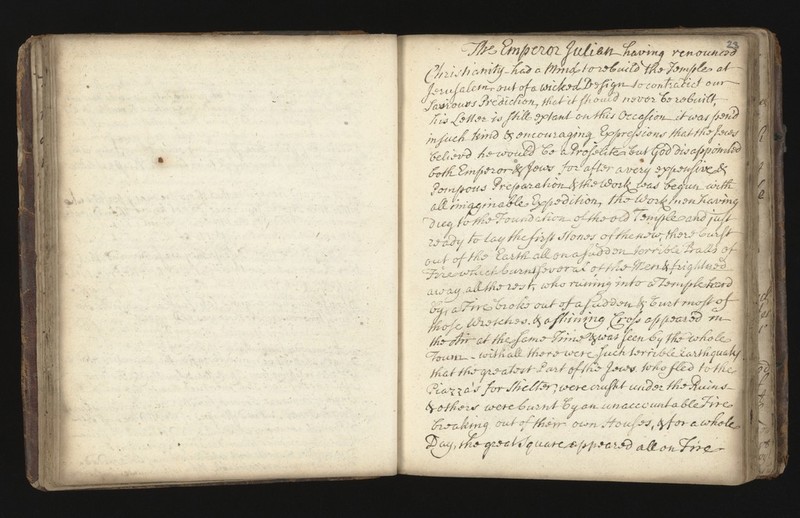 23
The Emperor Julian having renounced
Christianity had a Mind to rebuild the Temple at
Jerusalem, out of a wicked Design to contradict our
Saviours Prediction, that it should never be rebuilt,
his Letter is still extant on this Occasion it was pen'd
in such kind & encouraging Expressions that the Jews
believ'd he would be a Proselite but God disappointed
both Emperor & Jews for after a very expensive &
Pompous Preparation & the Work was begun with
all imaginable Expedition, the Workmen having
Dug to the Foundation of the old Temple and just
ready to lay the first Stones of the new, there burst
out of the Earth all on a sudden terrible Balls of
Fire which burnt several of the Men & frightned
away all the rest, who runing into a Temple hard
by, a Fire broke out of a sudden & burt most of
those Wretches, & a shining Cross appeared in
the Air at the same Time & was seen by the whole
Town - withall there were such terrible Earthquaks
that the greatest Part of the Jews who fled to the
Piazza's for Shelter, were crusht under the Ruins
& others were burnt by an unaccountable Fire
breaking out of their own Houses, & for a whole
Day, the great Square appeared all on Fire